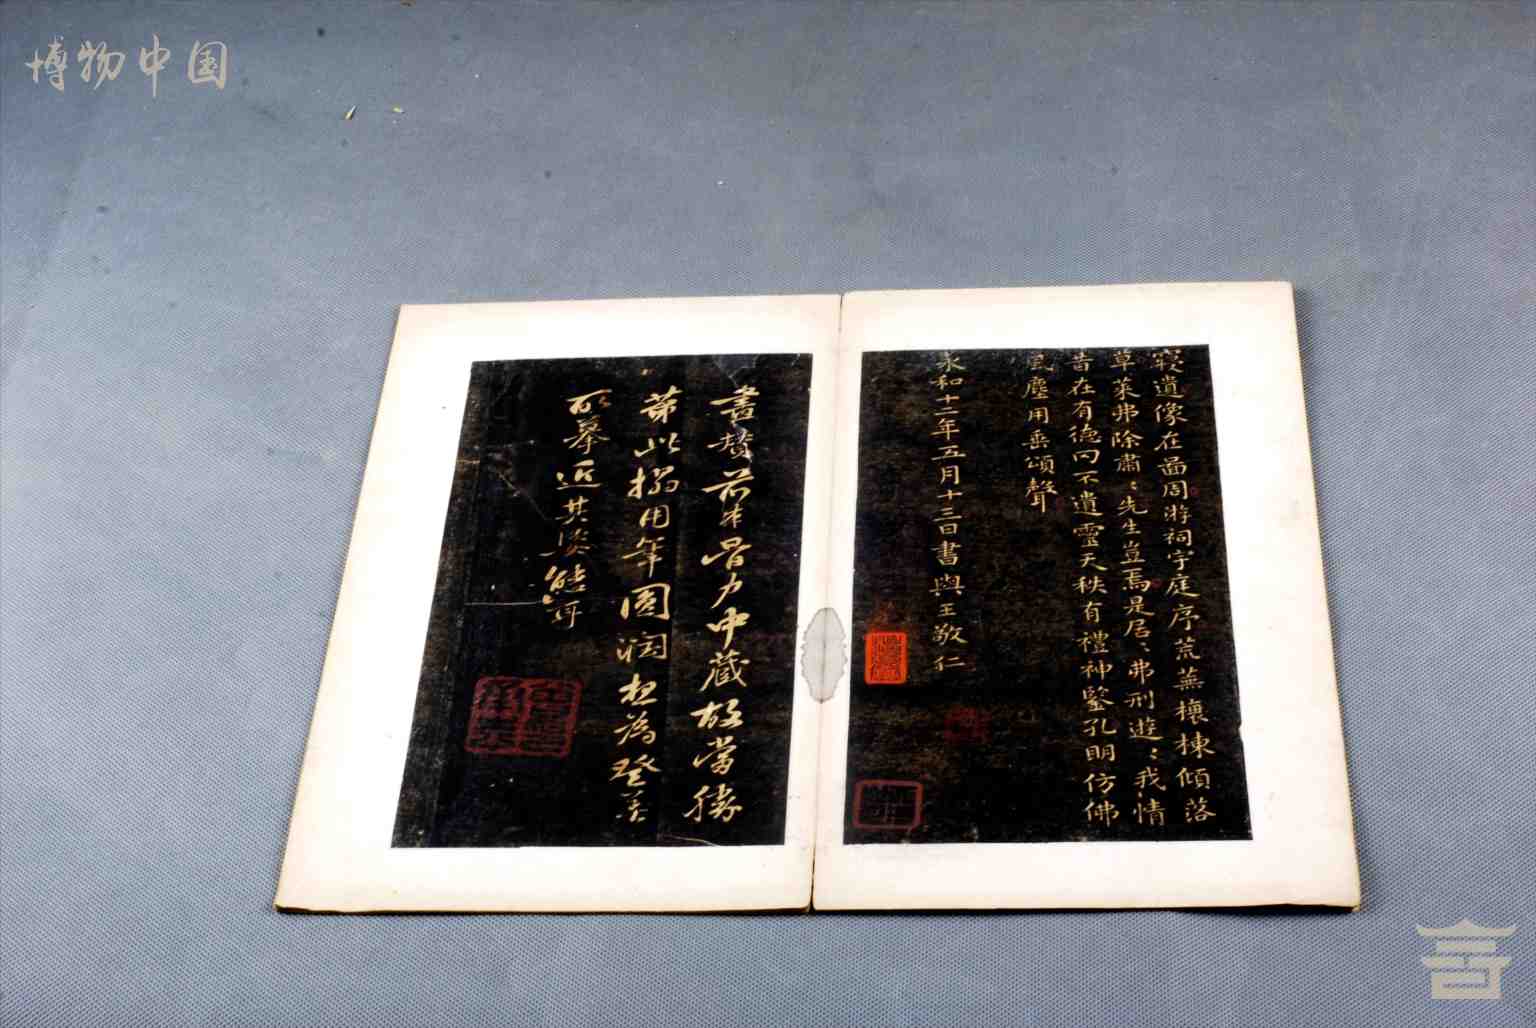 博物中国
寂遺像在圖周游祠宇庭序荒蕪榱棟傾落
草萊弗除肅〻先生豈焉是居〻弗刑遊〻我情
昔在有德罔不遺靈天秩有禮神鑒孔明仿佛
風塵用垂頌聲
永和十二年五月十三日書與王敬仁
畫贊前本骨力中藏故當勝
第此搨用筆圓潤想為登善
所摹近其姿態耳